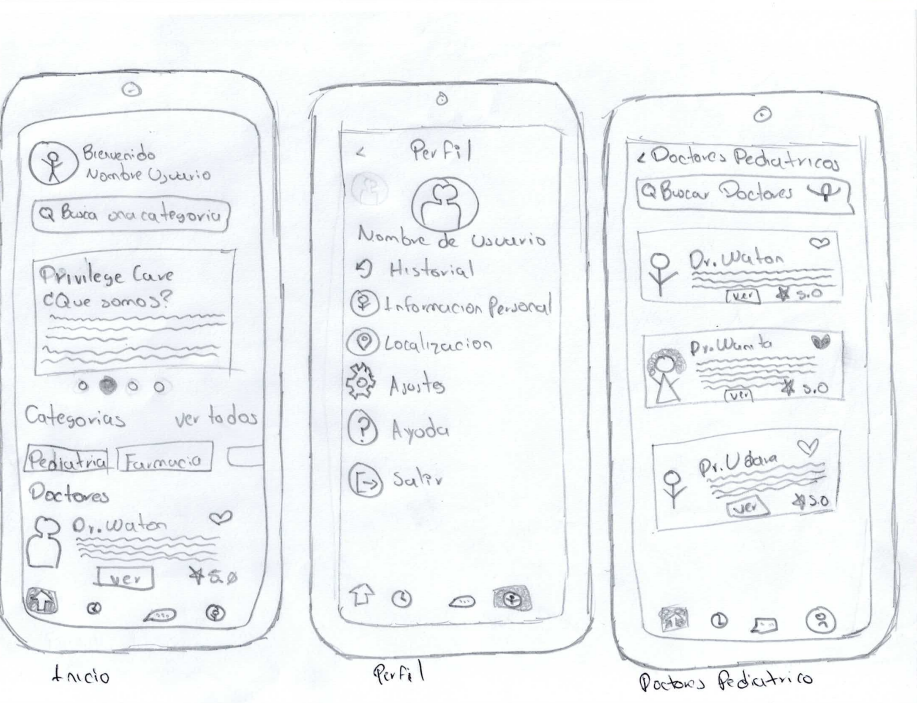 Bienvenido
Nombre Usuario
Busca una categoria
Privilege Care
¿Que somos?
Categorias ver todos
Pediatria Farmacia
Doctores
Dr. Waton
ver 5.0
Inicio
< Perfil
Nombre de Usuario
Historial
Informacion Personal
Localizacion
Ajustes
? Ayuda
Salir
Perfil
< Doctores Pediatricos
Buscar Doctores
Dr. Waton
ver 5.0
ver 5.0
ver 5.0
Doctores Pediatrico